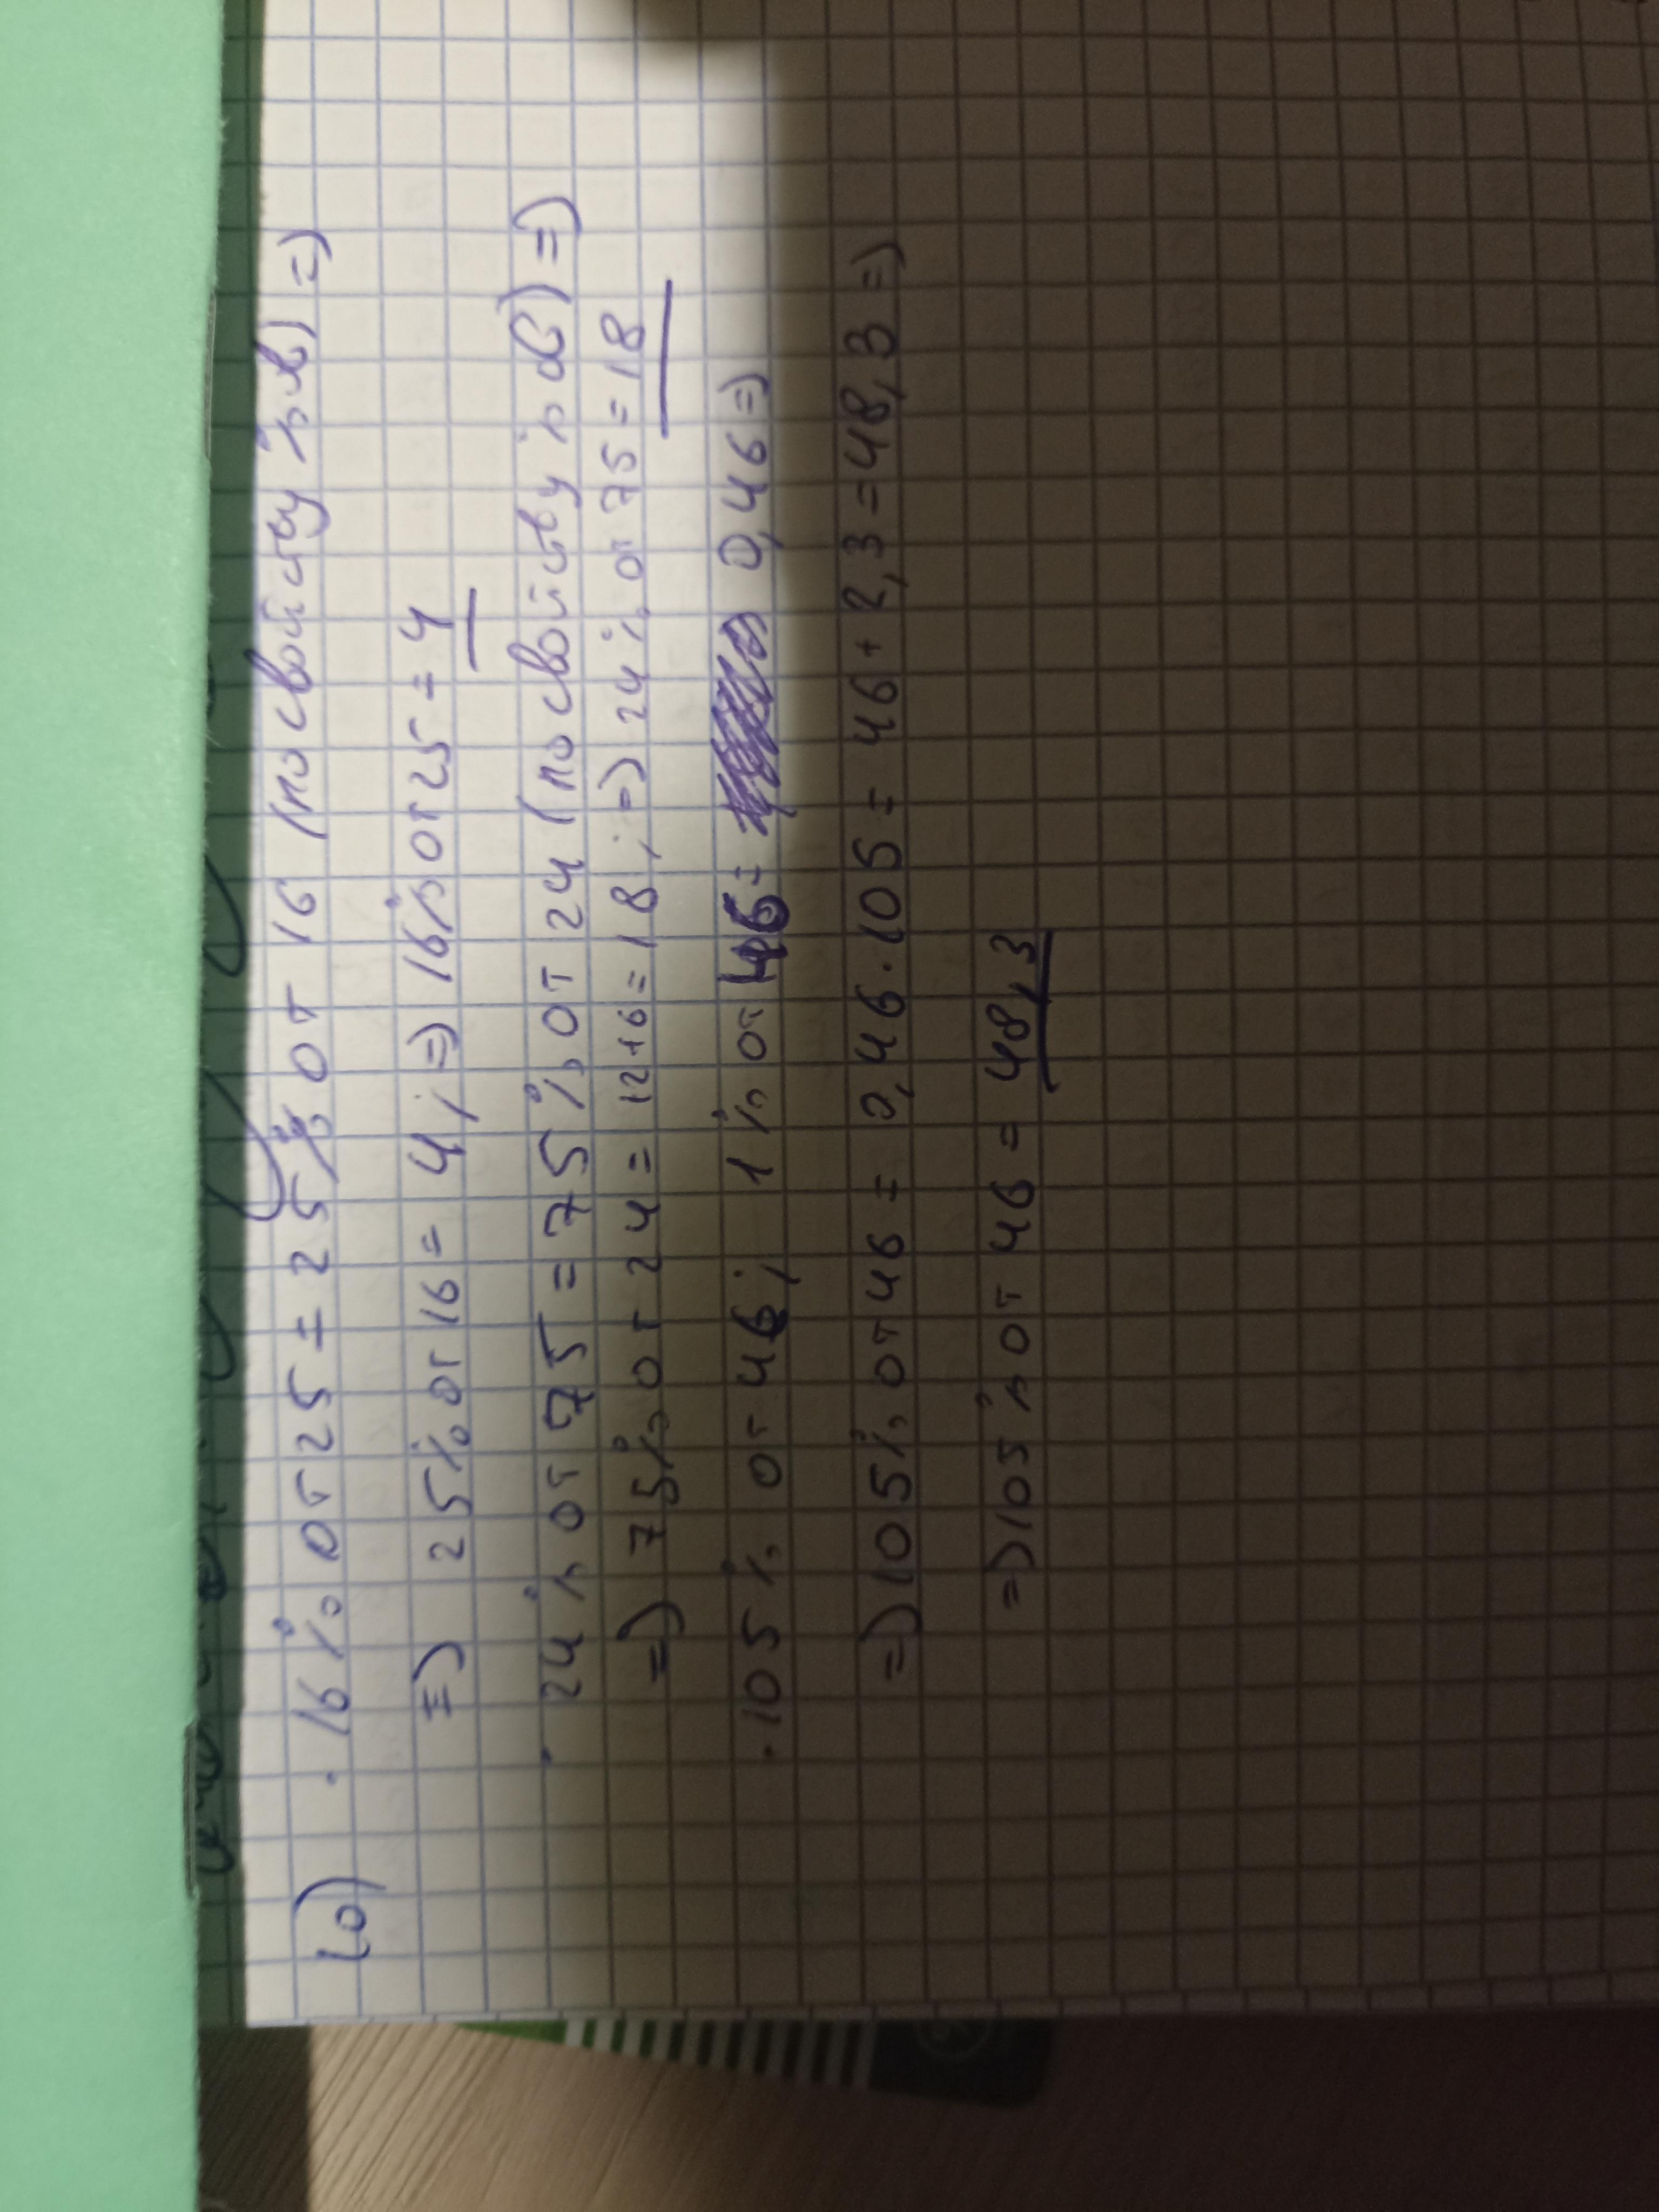 10) · 16% от 25 = 25% от 16 (по свойству %-ов) =>
=> 25% от 16 = 4; => 16% от 25 = 4
· 24% от 75 = 75% от 24 (по свойству %-ов) =>
=> 75% от 24 = 12+6 = 18; => 24% от 75 = 18
· 105% от 46; 1% от 46 = 0,46 =>
=> 105% от 46 = 0,46·105 = 46+2,3 = 48,3 =>
=> 105% от 46 = 48,3